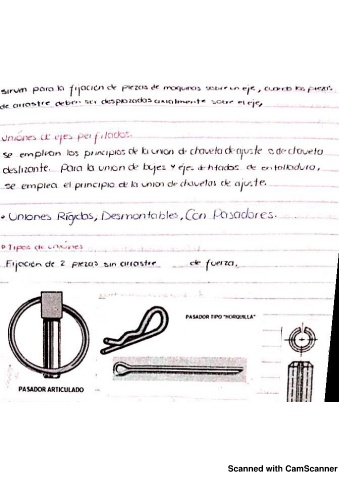 sirven para la fijación de piezas de maquinas sobre un eje, cuando las piezas
de arrastre deben ser desplazadas axialmente sobre el eje,
Uniones de ejes perfilados.
se emplean los principios de la union de chaveta de ajuste o de chaveta
deslizante. Para la union de bujes y ejes dentados de entalladura,
se emplea el principio de la union de chavetas de ajuste.
• Uniones Rígidas, Desmontables, Con Pasadores.
• Tipos de uniones
Fijación de 2 piezas sin arrastre de fuerza.
PASADOR TIPO "HORQUILLA"
PASADOR ARTICULADO
Scanned with CamScanner